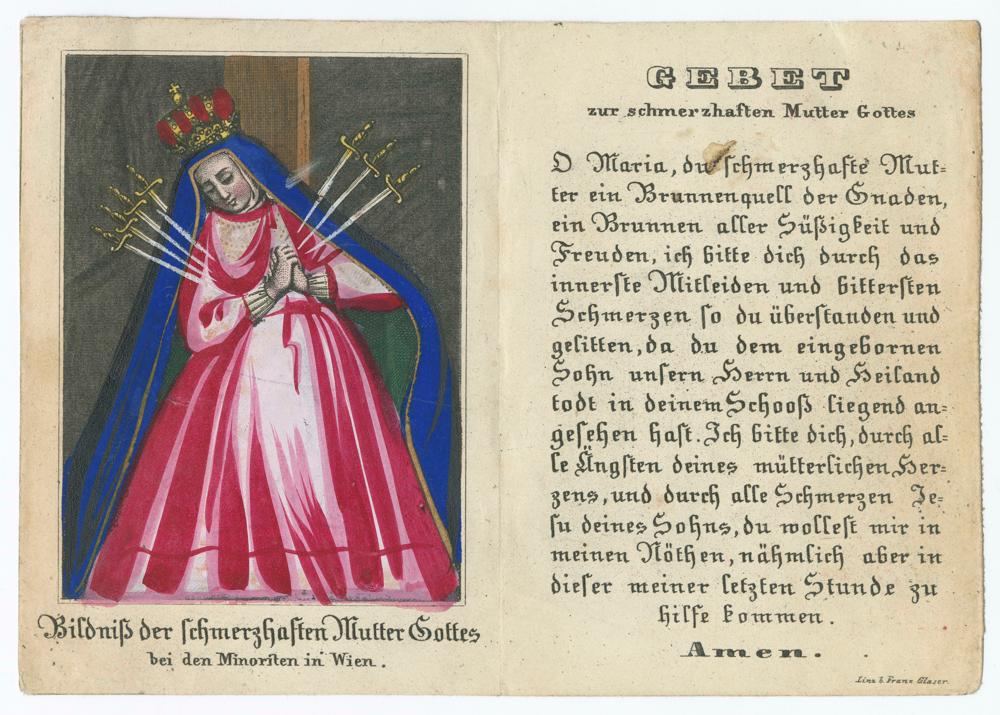 Bildniß der schmerzhaften Mutter Gottes
bei den Minoriten in Wien.
GEBET
zur schmerzhaften Mutter Gottes
O Maria, du schmerzhafte Mut=
ter ein Brunnenquell der Gnaden,
ein Brunnen aller Süßigkeit und
Freuden, ich bitte dich durch das
innerste Mitleiden und bittersten
Schmerzen so du überstanden und
gelitten, da du dem eingebornen
Sohn unsern Herrn und Heiland
todt in deinem Schooß liegend an=
gesehen hast. Ich bitte dich, durch al=
le Ängsten deines mütterlichen Her=
zens, und durch alle Schmerzen Je=
su deines Sohns, du wollest mir in
meinen Nöthen, nähmlich aber in
dieser meiner letzten Stunde zu
hilfe kommen.
Amen.
Linz b. Franz Glaser.